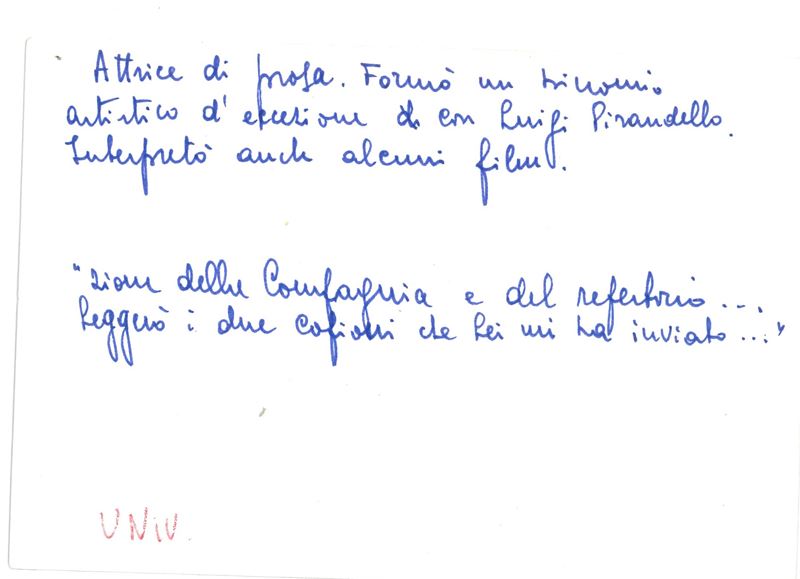 Attrice di prosa. Formò un binomio
artistico d'eccezione con Luigi Pirandello.
Interpretò anche alcuni film.
"zione della Compagnia e del repertorio...
Leggerò i due copioni che Lei mi ha inviato..."
UNIV.